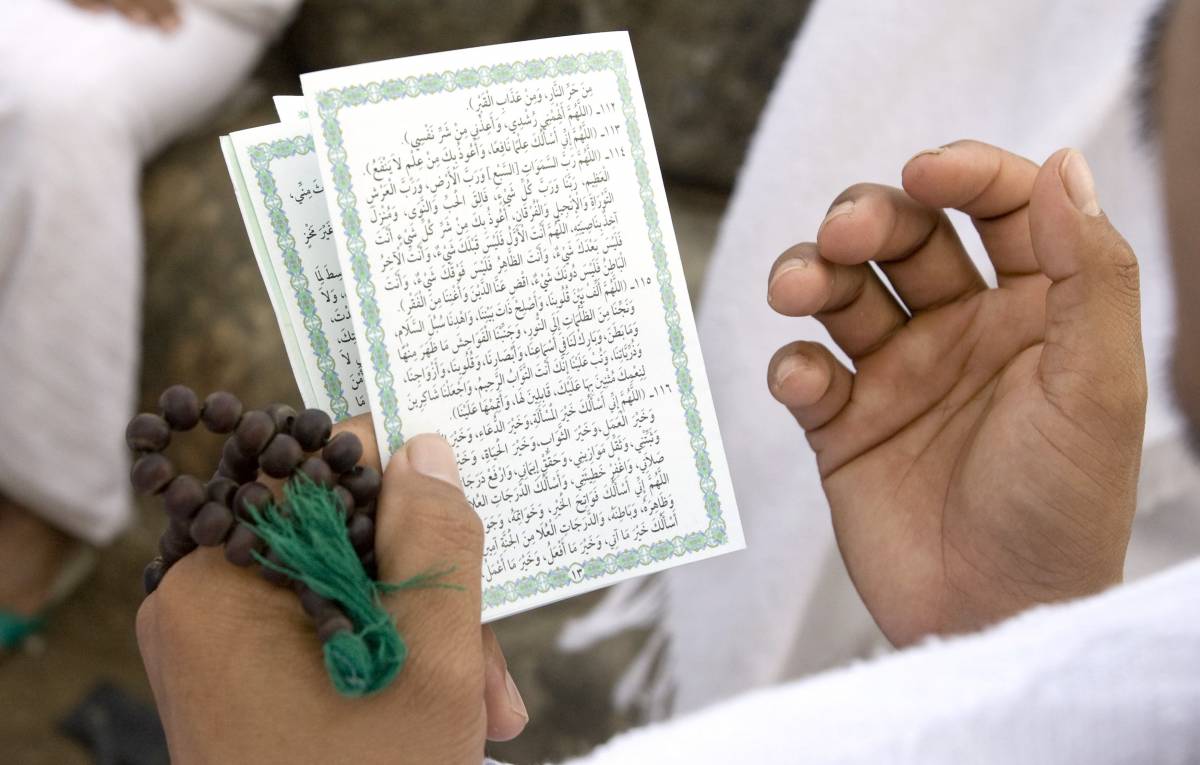 مِنْ حَرِّ النَّارِ، وَمِنْ عَذَابِ الْقَبْرِ).
١١٢ـ (اللَّهُمَّ أَلْهِمْنِي رُشْدِي، وَأَعِذْنِي مِنْ شَرِّ نَفْسِي)
١١٣ـ (اللَّهُمَّ إِنِّي أَسْأَلُكَ عِلْمًا نَافِعًا، وَأَعُوذُ بِكَ مِنْ عِلْمٍ لَا يَنْفَعُ).
١١٤ـ (اللَّهُمَّ رَبَّ السَّمَوَاتِ [السَّبْعِ] وَرَبَّ الْأَرْضِ، وَرَبَّ الْعَرْشِ
الْعَظِيمِ، رَبَّنَا وَرَبَّ كُلِّ شَيْءٍ، فَالِقَ الْحَبِّ وَالنَّوَى، وَمُنْزِلَ
التَّوْرَاةِ وَالْإِنْجِيلِ وَالْفُرْقَانِ، أَعُوذُ بِكَ مِنْ شَرِّ كُلِّ شَيْءٍ أَنْتَ
آخِذٌ بِنَاصِيَتِهِ، اللَّهُمَّ أَنْتَ الْأَوَّلُ فَلَيْسَ قَبْلَكَ شَيْءٌ، وَأَنْتَ الْآخِرُ
فَلَيْسَ بَعْدَكَ شَيْءٌ، وَأَنْتَ الظَّاهِرُ فَلَيْسَ فَوْقَكَ شَيْءٌ، وَأَنْتَ
الْبَاطِنُ فَلَيْسَ دُونَكَ شَيْءٌ، اقْضِ عَنَّا الدَّيْنَ وَأَغْنِنَا مِنَ الْفَقْرِ).
١١٥ـ (اللَّهُمَّ أَلِّفْ بَيْنَ قُلُوبِنَا، وَأَصْلِحْ ذَاتَ بَيْنِنَا، وَاهْدِنَا سُبُلَ السَّلَامِ،
وَنَجِّنَا مِنَ الظُّلُمَاتِ إِلَى النُّورِ، وَجَنِّبْنَا الْفَوَاحِشَ مَا ظَهَرَ مِنْهَا
وَمَا بَطَنَ، وَبَارِكْ لَنَا فِي أَسْمَاعِنَا، وَأَبْصَارِنَا، وَقُلُوبِنَا، وَأَزْوَاجِنَا،
وَذُرِّيَّاتِنَا، وَتُبْ عَلَيْنَا إِنَّكَ أَنْتَ التَّوَّابُ الرَّحِيمُ، وَاجْعَلْنَا شَاكِرِينَ
لِنِعَمِكَ مُثْنِينَ بِهَا عَلَيْكَ، قَابِلِينَ لَهَا، وَأَتْمِمْهَا عَلَيْنَا)
١١٦ـ (اللَّهُمَّ إِنِّي أَسْأَلُكَ خَيْرَ الْمَسْأَلَةِ، وَخَيْرَ الدُّعَاءِ، وَخَيْرَ
وَخَيْرَ الْعَمَلِ، وَخَيْرَ الثَّوَابِ، وَخَيْرَ الْحَيَاةِ،
وَثَبِّتْنِي، وَثَقِّلْ مَوَازِينِي، وَحَقِّقْ إِيمَانِي، وَارْفَعْ
صَلَاتِي، وَاغْفِرْ خَطِيئَتِي، وَأَسْأَلُكَ الدَّرَجَاتِ
اللَّهُمَّ إِنِّي أَسْأَلُكَ فَوَاتِحَ الْخَيْرِ، وَخَوَاتِمَهُ،
وَظَاهِرَهُ، وَبَاطِنَهُ، وَالدَّرَجَاتِ الْعُلَا مِنَ الْجَنَّةِ
أَسْأَلُكَ خَيْرَ مَا آتِي، وَخَيْرَ مَا أَفْعَلُ، وَخَيْرَ مَا أَعْمَلُ،
١٣